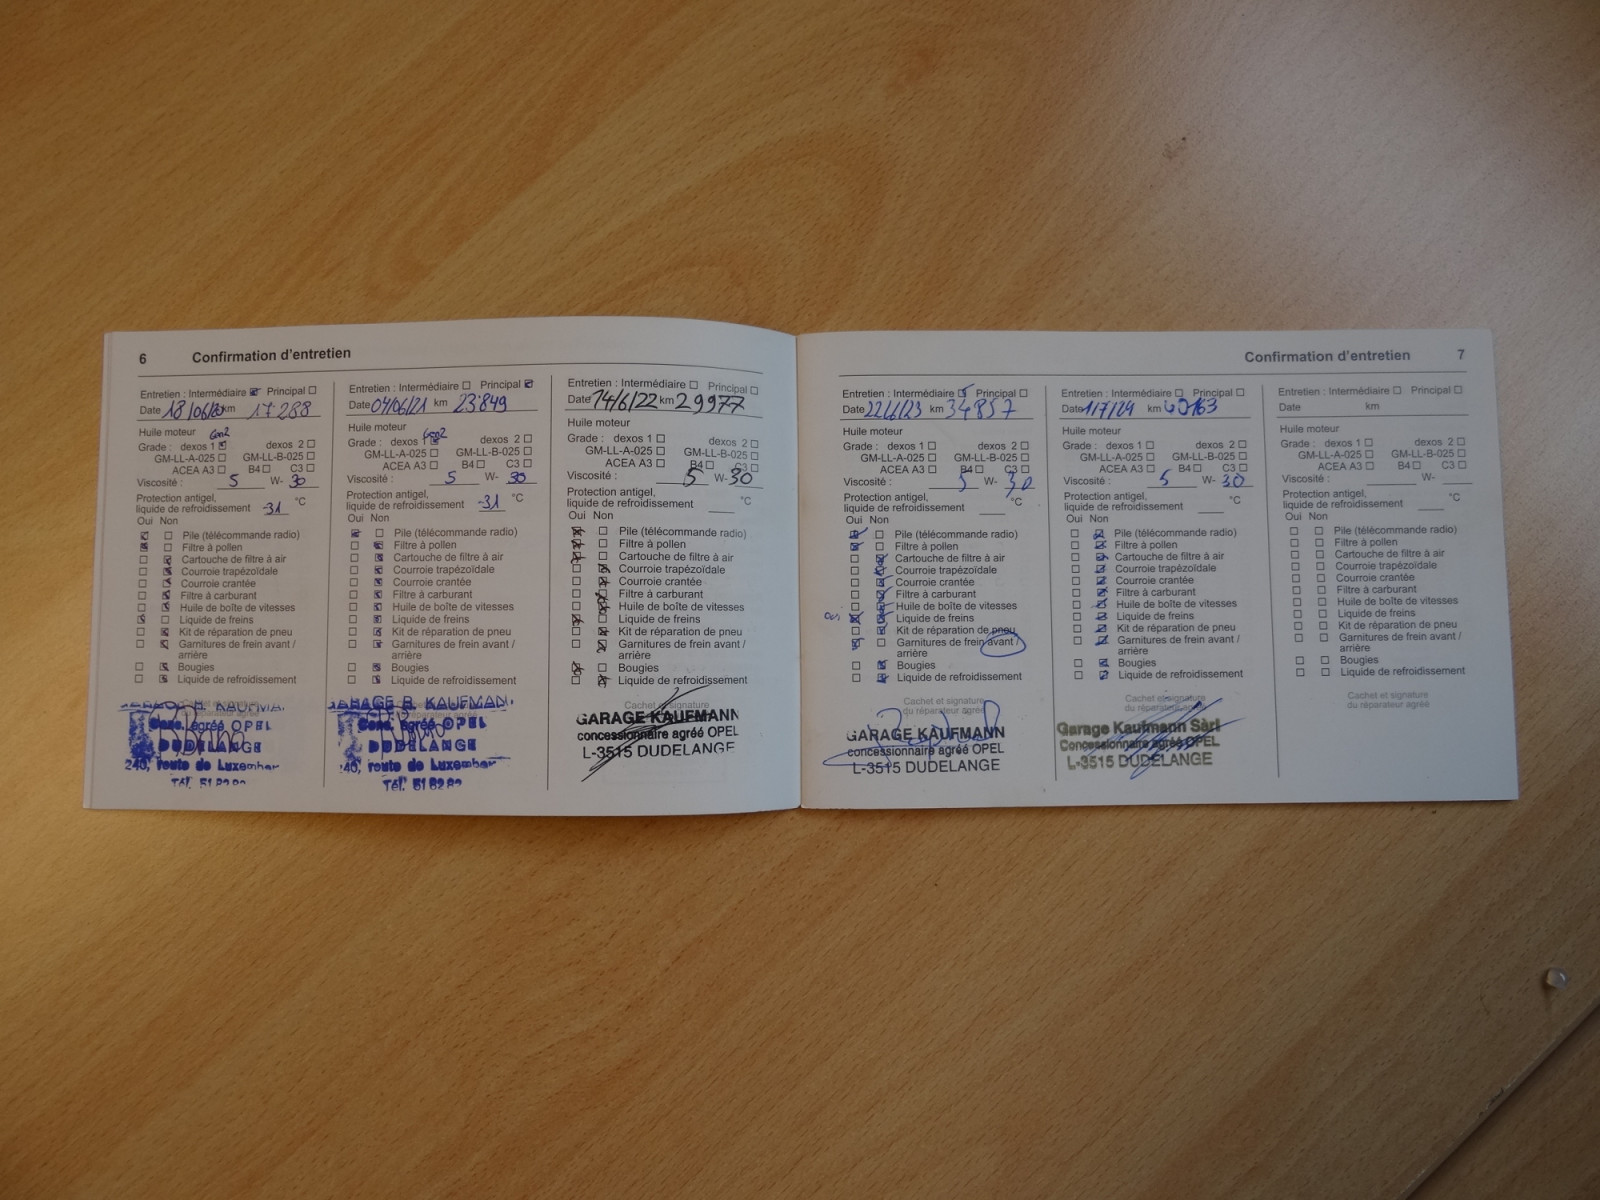 6 Confirmation d'entretien
Entretien : Intermédiaire Principal
Date 18/06/20 km 17288
Huile moteur
Gen2
Grade : dexos 1 dexos 2
GM-LL-A-025 GM-LL-B-025
ACEA A3 B4 C3
Viscosité : 5 W- 30
Protection antigel,
liquide de refroidissement -31 °C
Oui Non
Pile (télécommande radio)
Filtre à pollen
Cartouche de filtre à air
Courroie trapézoïdale
Courroie crantée
Filtre à carburant
Huile de boîte de vitesses
Liquide de freins
Kit de réparation de pneu
Garnitures de frein avant /
arrière
Bougies
Liquide de refroidissement
Cachet et signature
du réparateur agréé
Conc. agréé OPEL
DUDELANGE
240, route de Luxembar
Entretien : Intermédiaire Principal
Date 04/06/21 km 23'849
Huile moteur
Gen2
Grade : dexos 1 dexos 2
GM-LL-A-025 GM-LL-B-025
ACEA A3 B4 C3
Viscosité : 5 W- 30
Protection antigel,
liquide de refroidissement -31 °C
Oui Non
Pile (télécommande radio)
Filtre à pollen
Cartouche de filtre à air
Courroie trapézoïdale
Courroie crantée
Filtre à carburant
Huile de boîte de vitesses
Liquide de freins
Kit de réparation de pneu
Garnitures de frein avant /
arrière
Bougies
Liquide de refroidissement
Conc. agréé OPEL
DUDELANGE
40, route de Luxembar
Tél. 51 82 82
Entretien : Intermédiaire Principal
Date 14/6/22 km 29977
Huile moteur
Grade : dexos 1 dexos 2
GM-LL-A-025 GM-LL-B-025
ACEA A3 B4 C3
Viscosité : 5 W- 30
Protection antigel,
liquide de refroidissement °C
Oui Non
Pile (télécommande radio)
Filtre à pollen
Cartouche de filtre à air
Courroie trapézoïdale
Courroie crantée
Filtre à carburant
Huile de boîte de vitesses
Liquide de freins
Kit de réparation de pneu
Garnitures de frein avant /
arrière
Bougies
Liquide de refroidissement
Cachet et signature
GARAGE KAUFMANN
concessionnaire agréé OPEL
L-3515 DUDELANGE
Confirmation d'entretien 7
Entretien : Intermédiaire Principal
Date 22/6/23 km 34857
Huile moteur
Grade : dexos 1 dexos 2
GM-LL-A-025 GM-LL-B-025
ACEA A3 B4 C3
Viscosité : 5 W- 30
Protection antigel,
liquide de refroidissement °C
Oui Non
Pile (télécommande radio)
Filtre à pollen
Cartouche de filtre à air
Courroie trapézoïdale
Courroie crantée
Filtre à carburant
Huile de boîte de vitesses
Liquide de freins
Kit de réparation de pneu
Garnitures de frein avant /
arrière
Bougies
Liquide de refroidissement
Cachet et signature
du réparateur agréé
GARAGE KAUFMANN
concessionnaire agréé OPEL
L-3515 DUDELANGE
Entretien : Intermédiaire Principal
Date 1/7/24 km
Huile moteur
Grade : dexos 1 dexos 2
GM-LL-A-025 GM-LL-B-025
ACEA A3 B4 C3
Viscosité : 5 W- 30
Protection antigel,
liquide de refroidissement °C
Oui Non
Pile (télécommande radio)
Filtre à pollen
Cartouche de filtre à air
Courroie trapézoïdale
Courroie crantée
Filtre à carburant
Huile de boîte de vitesses
Liquide de freins
Kit de réparation de pneu
Garnitures de frein avant /
arrière
Bougies
Liquide de refroidissement
Cachet et signature
du réparateur agréé
Garage Kaufmann Sàrl
Concessionnaire agréé OPEL
L-3515 DUDELANGE
Entretien : Intermédiaire Principal
Date km
Huile moteur
Grade : dexos 1 dexos 2
GM-LL-A-025 GM-LL-B-025
ACEA A3 B4 C3
Viscosité : W-
Protection antigel,
liquide de refroidissement °C
Oui Non
Pile (télécommande radio)
Filtre à pollen
Cartouche de filtre à air
Courroie trapézoïdale
Courroie crantée
Filtre à carburant
Huile de boîte de vitesses
Liquide de freins
Kit de réparation de pneu
Garnitures de frein avant /
arrière
Bougies
Liquide de refroidissement
Cachet et signature
du réparateur agréé